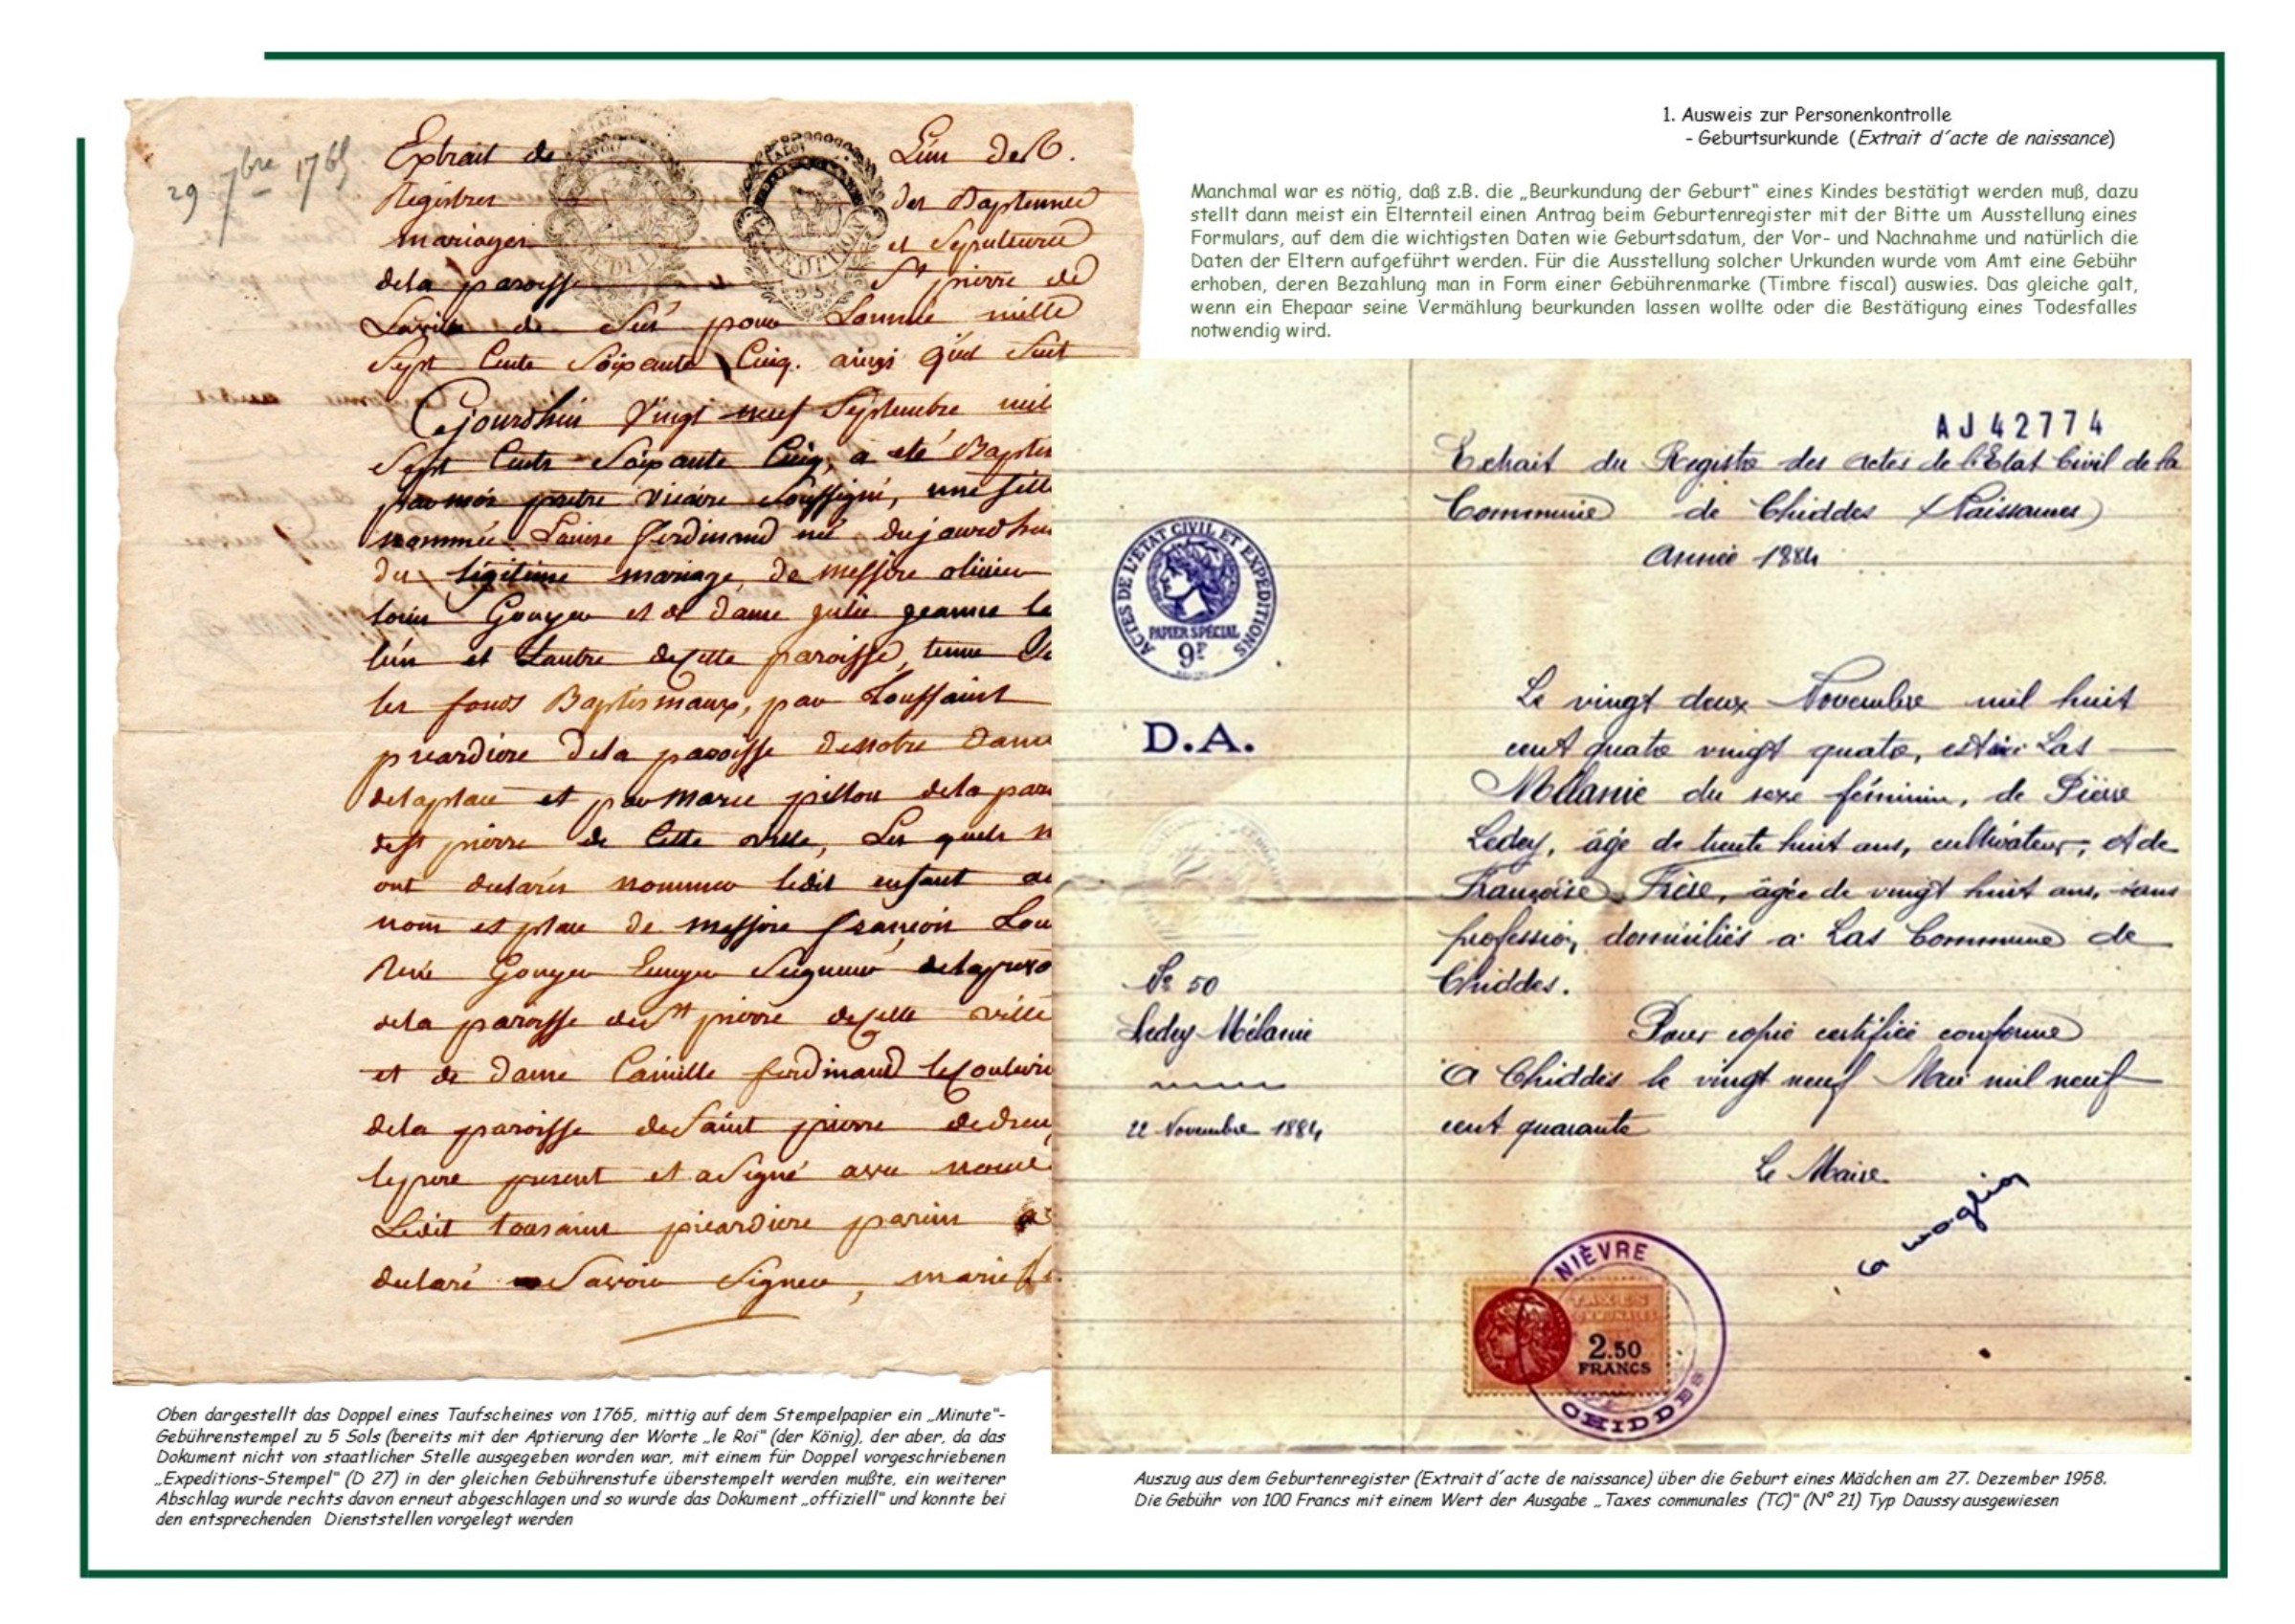 1. Ausweis zur Personenkontrolle
- Geburtsurkunde (Extrait d´acte de naissance)
Manchmal war es nötig, daß z.B. die „Beurkundung der Geburt“ eines Kindes bestätigt werden muß, dazu
stellt dann meist ein Elternteil einen Antrag beim Geburtenregister mit der Bitte um Ausstellung eines
Formulars, auf dem die wichtigsten Daten wie Geburtsdatum, der Vor- und Nachnahme und natürlich die
Daten der Eltern aufgeführt werden. Für die Ausstellung solcher Urkunden wurde vom Amt eine Gebühr
erhoben, deren Bezahlung man in Form einer Gebührenmarke (Timbre fiscal) auswies. Das gleiche galt,
wenn ein Ehepaar seine Vermählung beurkunden lassen wollte oder die Bestätigung eines Todesfalles
notwendig wird.
29 7bre 1765
Extrait de
Registres des Baptemes
mariages et Sepultures
dela paroisse St pierre de
pour Lannée mille
Sept Cents Soixante Cinq. ainsi quil Suit
Cejourdhui Vingt neuf Septembre mil
Sept Cents Soixante Cinq, a eté
par moi pretre Vicaire Soussigné, une fille
nommée Louise ferdinand née
Du légitime mariage, De messire olivier
louis Gouyon et de Dame julie jeanne le
lun et Lautre de cette paroisse, tenue
les fonds Baptismaux, par Toussaint
picardiere Dela paroisse Denotre Dame
delaplace et par marie pillon dela
de St pierre de Cette ville, Les quels
ont declarés nommer ledit enfant au
nom et place de messire françois
René Gouyon Seigneur
dela paroisse de St pierre de cette ville
et de Dame Camille ferdinand
dela paroisse de Saint pierre
lepere present et a Signé avec nous
Ledit toussaint picardiere parein a
declaré Savoir Signer, marie
AJ 42774
Extrait du Registre des actes de l'Etat Civil de la
Commune de Chiddes (Naissances)
Année 1884
ACTES DE L'ÉTAT CIVIL ET EXPÉDITIONS
PAPIER SPÉCIAL
9F
D.A.
Le vingt deux Novembre mil huit
cent quatre vingt quatre, est née à Las
Mélanie du sexe féminin, de Pierre
Ledey, âgé de trente huit ans, cultivateur, et de
Françoise Frère, âgée de vingt huit ans, sans
profession, domiciliés à Las Commune de
Chiddes.
No 50
Ledey Mélanie
22 Novembre 1884
Pour copie certifiée conforme
A Chiddes le vingt neuf Mai mil neuf
cent quarante
Le Maire
NIÈVRE
TAXES
COMMUNALES
2.50
FRANCS
CHIDDES
Oben dargestellt das Doppel eines Taufscheines von 1765, mittig auf dem Stempelpapier ein „Minute“-
Gebührenstempel zu 5 Sols (bereits mit der Aptierung der Worte „le Roi“ (der König), der aber, da das
Dokument nicht von staatlicher Stelle ausgegeben worden war, mit einem für Doppel vorgeschriebenen
„Expeditions-Stempel“ (D 27) in der gleichen Gebührenstufe überstempelt werden mußte, ein weiterer
Abschlag wurde rechts davon erneut abgeschlagen und so wurde das Dokument „offiziell“ und konnte bei
den entsprechenden Dienststellen vorgelegt werden
Auszug aus dem Geburtenregister (Extrait d´acte de naissance) über die Geburt eines Mädchen am 27. Dezember 1958.
Die Gebühr von 100 Francs mit einem Wert der Ausgabe „Taxes communales (TC)“ (N° 21) Typ Daussy ausgewiesen